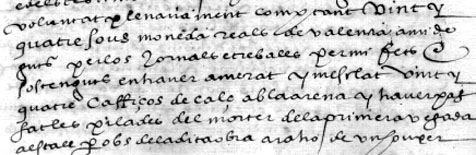 voluntat plenariament comptant vint y
quatre sous moneda reals de valencia
per los jornals e trebals per mi fets e
sostenguts en haver amerat y mesclat vint y
quatre caffiços de calç ab la arena y haver pas
fat les pilades del morter de la primera vegada
a obs de la dita obra a raho de un sou per